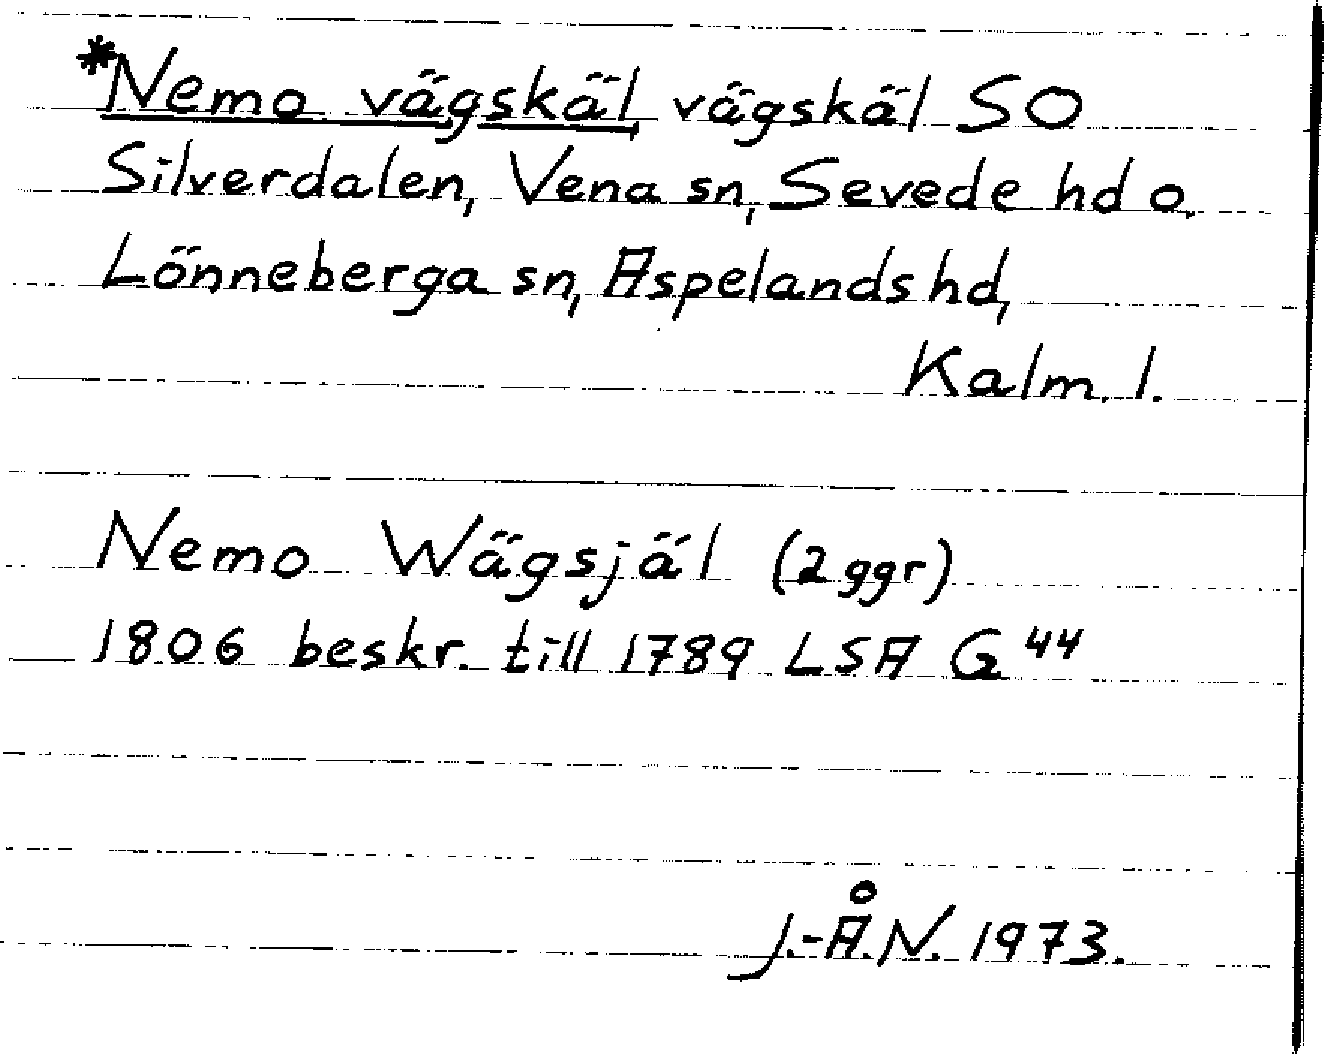 *Nemo vägskäl vägskäl SO
Silverdalen, Vena sn, Sevede hd o.
Lönneberga sn, Aspelands hd,
Kalm. l.
Nemo Wägsjäl (2 ggr)
1806 beskr. till 1789 LSA G 44
J.-Å.N. 1973.